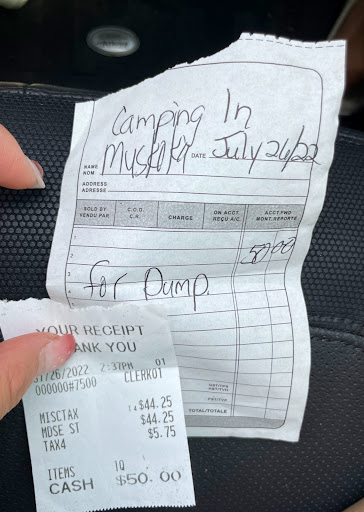 Camping In
NAME
NOM
Muskoka
DATE July 26/22
ADDRESS
ADRESSE
SOLD BY
VENDU PAR
C.O.D.
C.R.
CHARGE
ON ACCT.
REÇU A/C.
ACCT. FWD
MONT. REPORTÉ
1
2
50.00
3
for Dump.
TOTAL/TOTALE
YOUR RECEIPT
THANK YOU
07/26/2022 2:37PM 01
000000#7500 CLERK01
MISCTAX $44.25
MDSE ST $44.25
TAX4 $5.75
ITEMS 1Q
CASH $50.00